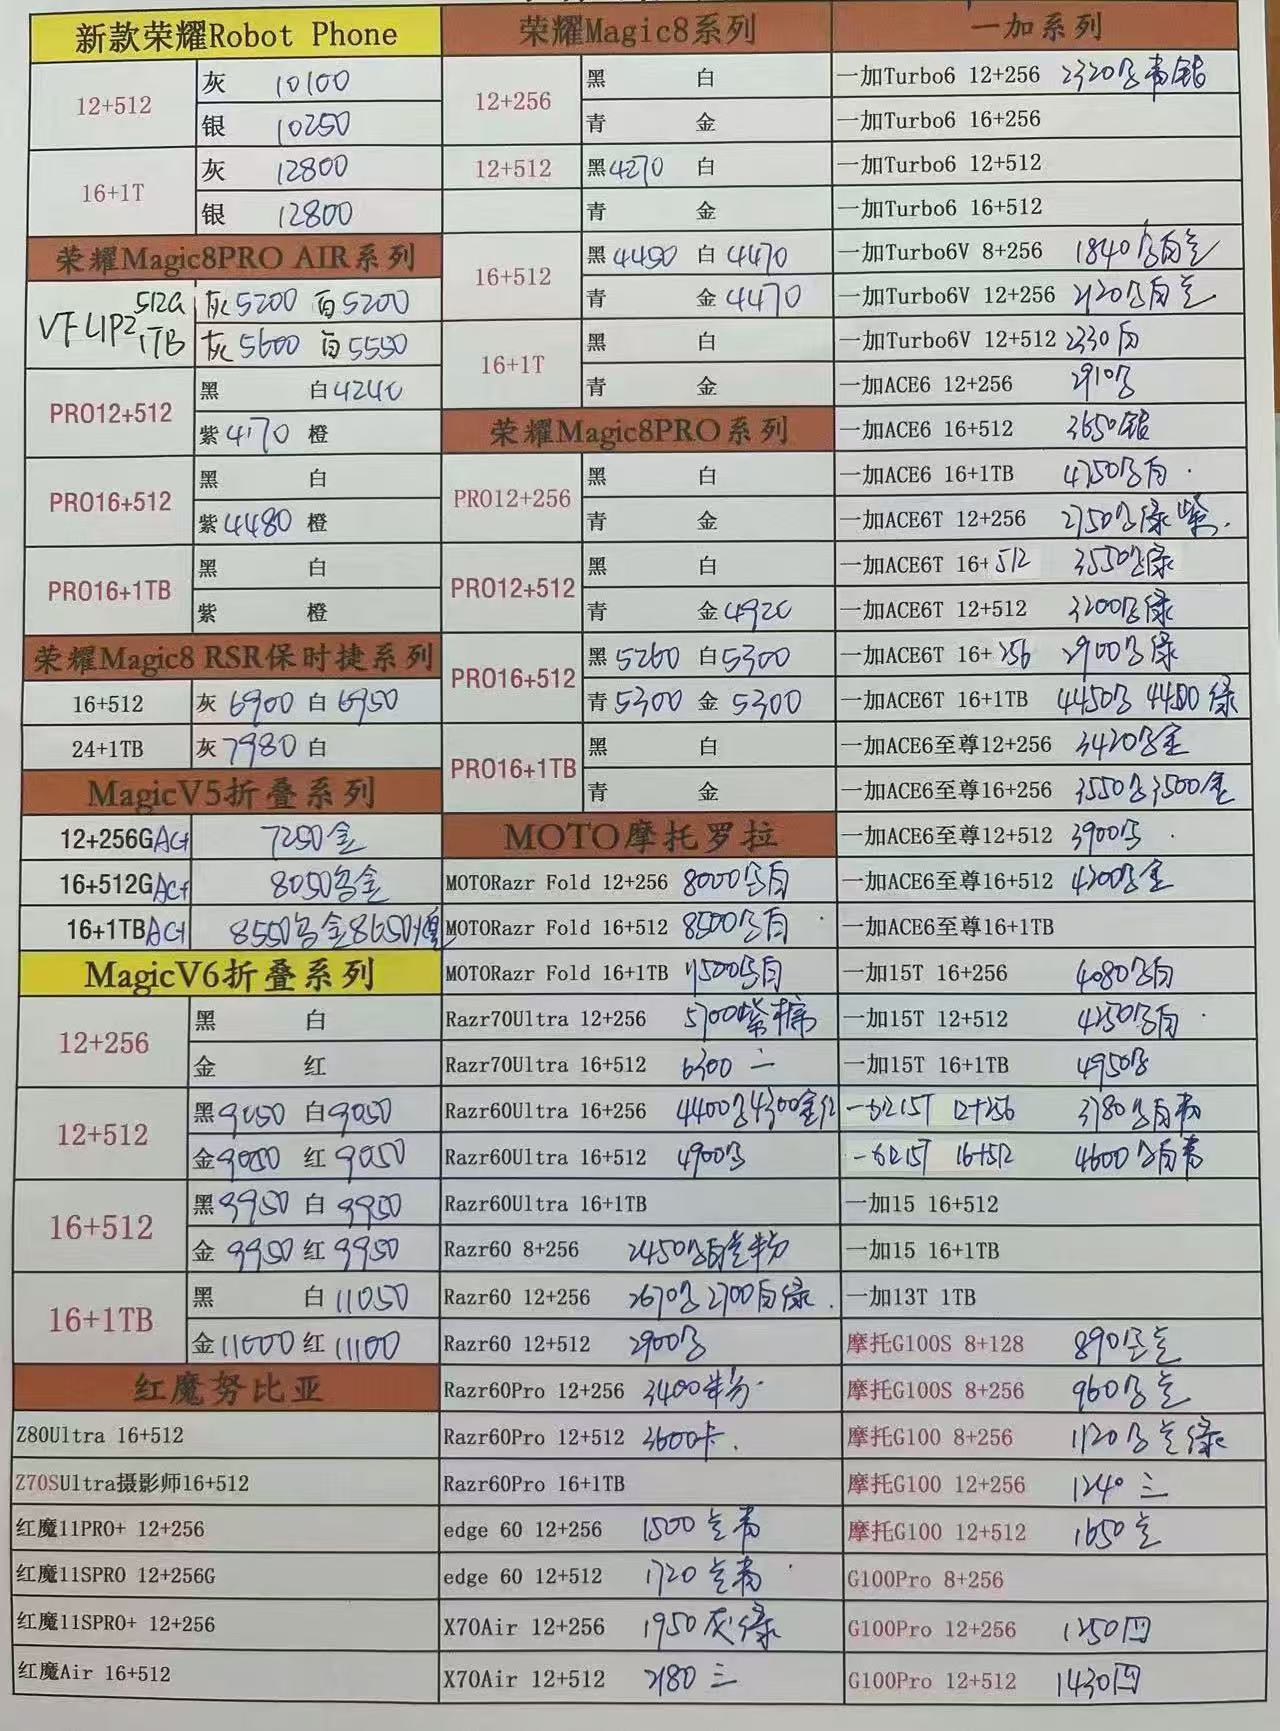 新款荣耀Robot Phone
12+512
灰 10100
银 10250
16+1T
灰 12800
银 12800
荣耀Magic8PRO AIR系列
VFLIP2 512G
1TB
灰5200 白5200
灰5600 白5550
PRO12+512
黑 白4240
紫4170 橙
PRO16+512
黑 白
紫4480 橙
PRO16+1TB
黑 白
紫 橙
荣耀Magic8 RSR保时捷系列
16+512 灰6900 白6950
24+1TB 灰7980 白
MagicV5折叠系列
12+256G 7250金
16+512G 8050名金
16+1TB 8550名金8650
MagicV6折叠系列
12+256
黑 白
金 红
12+512
黑9050 白9050
金9050 红9050
16+512
黑9950 白9950
金9950 红9950
16+1TB
黑 白11050
金11000 红11100
红魔努比亚
Z80Ultra 16+512
Z70SUltra摄影师16+512
红魔11PRO+ 12+256
红魔11SPRO 12+256G
红魔11SPRO+ 12+256
红魔Air 16+512
荣耀Magic8系列
12+256
黑 白
青 金
12+512
黑4270 白
青 金
16+512
黑4450 白4470
青 金4470
16+1T
黑 白
青 金
荣耀Magic8PRO系列
PRO12+256
黑 白
青 金
PRO12+512
黑 白
青 金4920
PRO16+512
黑5260 白5300
青5300 金5300
PRO16+1TB
黑 白
青 金
MOTO摩托罗拉
MOTORazr Fold 12+256 8000名白
MOTORazr Fold 16+512 8500名白
MOTORazr Fold 16+1TB 白
Razr70Ultra 12+256 5700紫
Razr70Ultra 16+512 6300 二
Razr60Ultra 16+256 4400名4300金红
Razr60Ultra 16+512 4900名
Razr60Ultra 16+1TB
Razr60 8+256 2450名白
Razr60 12+256 2670名 2700白绿
Razr60 12+512 2900名
Razr60Pro 12+256 3400
Razr60Pro 12+512 3600卡
Razr60Pro 16+1TB
edge 60 12+256 1500 青
edge 60 12+512 1720 青
X70Air 12+256 1950灰绿
X70Air 12+512 2180 三
一加系列
一加Turbo6 12+256 2320名青银
一加Turbo6 16+256
一加Turbo6 12+512
一加Turbo6 16+512
一加Turbo6V 8+256 1840名白
一加Turbo6V 12+256 2120名白
一加Turbo6V 12+512 2330白
一加ACE6 12+256 2910名
一加ACE6 16+512 3650银
一加ACE6 16+1TB 名白
一加ACE6T 12+256 2750名绿紫
一加ACE6T 16+512 3550名绿
一加ACE6T 12+512 3200名绿
一加ACE6T 16+256 2900名绿
一加ACE6T 16+1TB 4450名 4400绿
一加ACE6至尊12+256 3420名金
一加ACE6至尊16+256 3550名3500金
一加ACE6至尊12+512 3900名
一加ACE6至尊16+512 4200名金
一加ACE6至尊16+1TB
一加15T 16+256 4080名白
一加15T 12+512 4250名白
一加15T 16+1TB 4950名
一加15T 12+256 3780名白
一加15T 16+512 4600名白青
一加15 16+512
一加15 16+1TB
一加13T 1TB
摩托G100S 8+128 890
摩托G100S 8+256 960名
摩托G100 8+256 1120名 绿
摩托G100 12+256 1240 三
摩托G100 12+512 1650
G100Pro 8+256
G100Pro 12+256 1250四
G100Pro 12+512 1430四